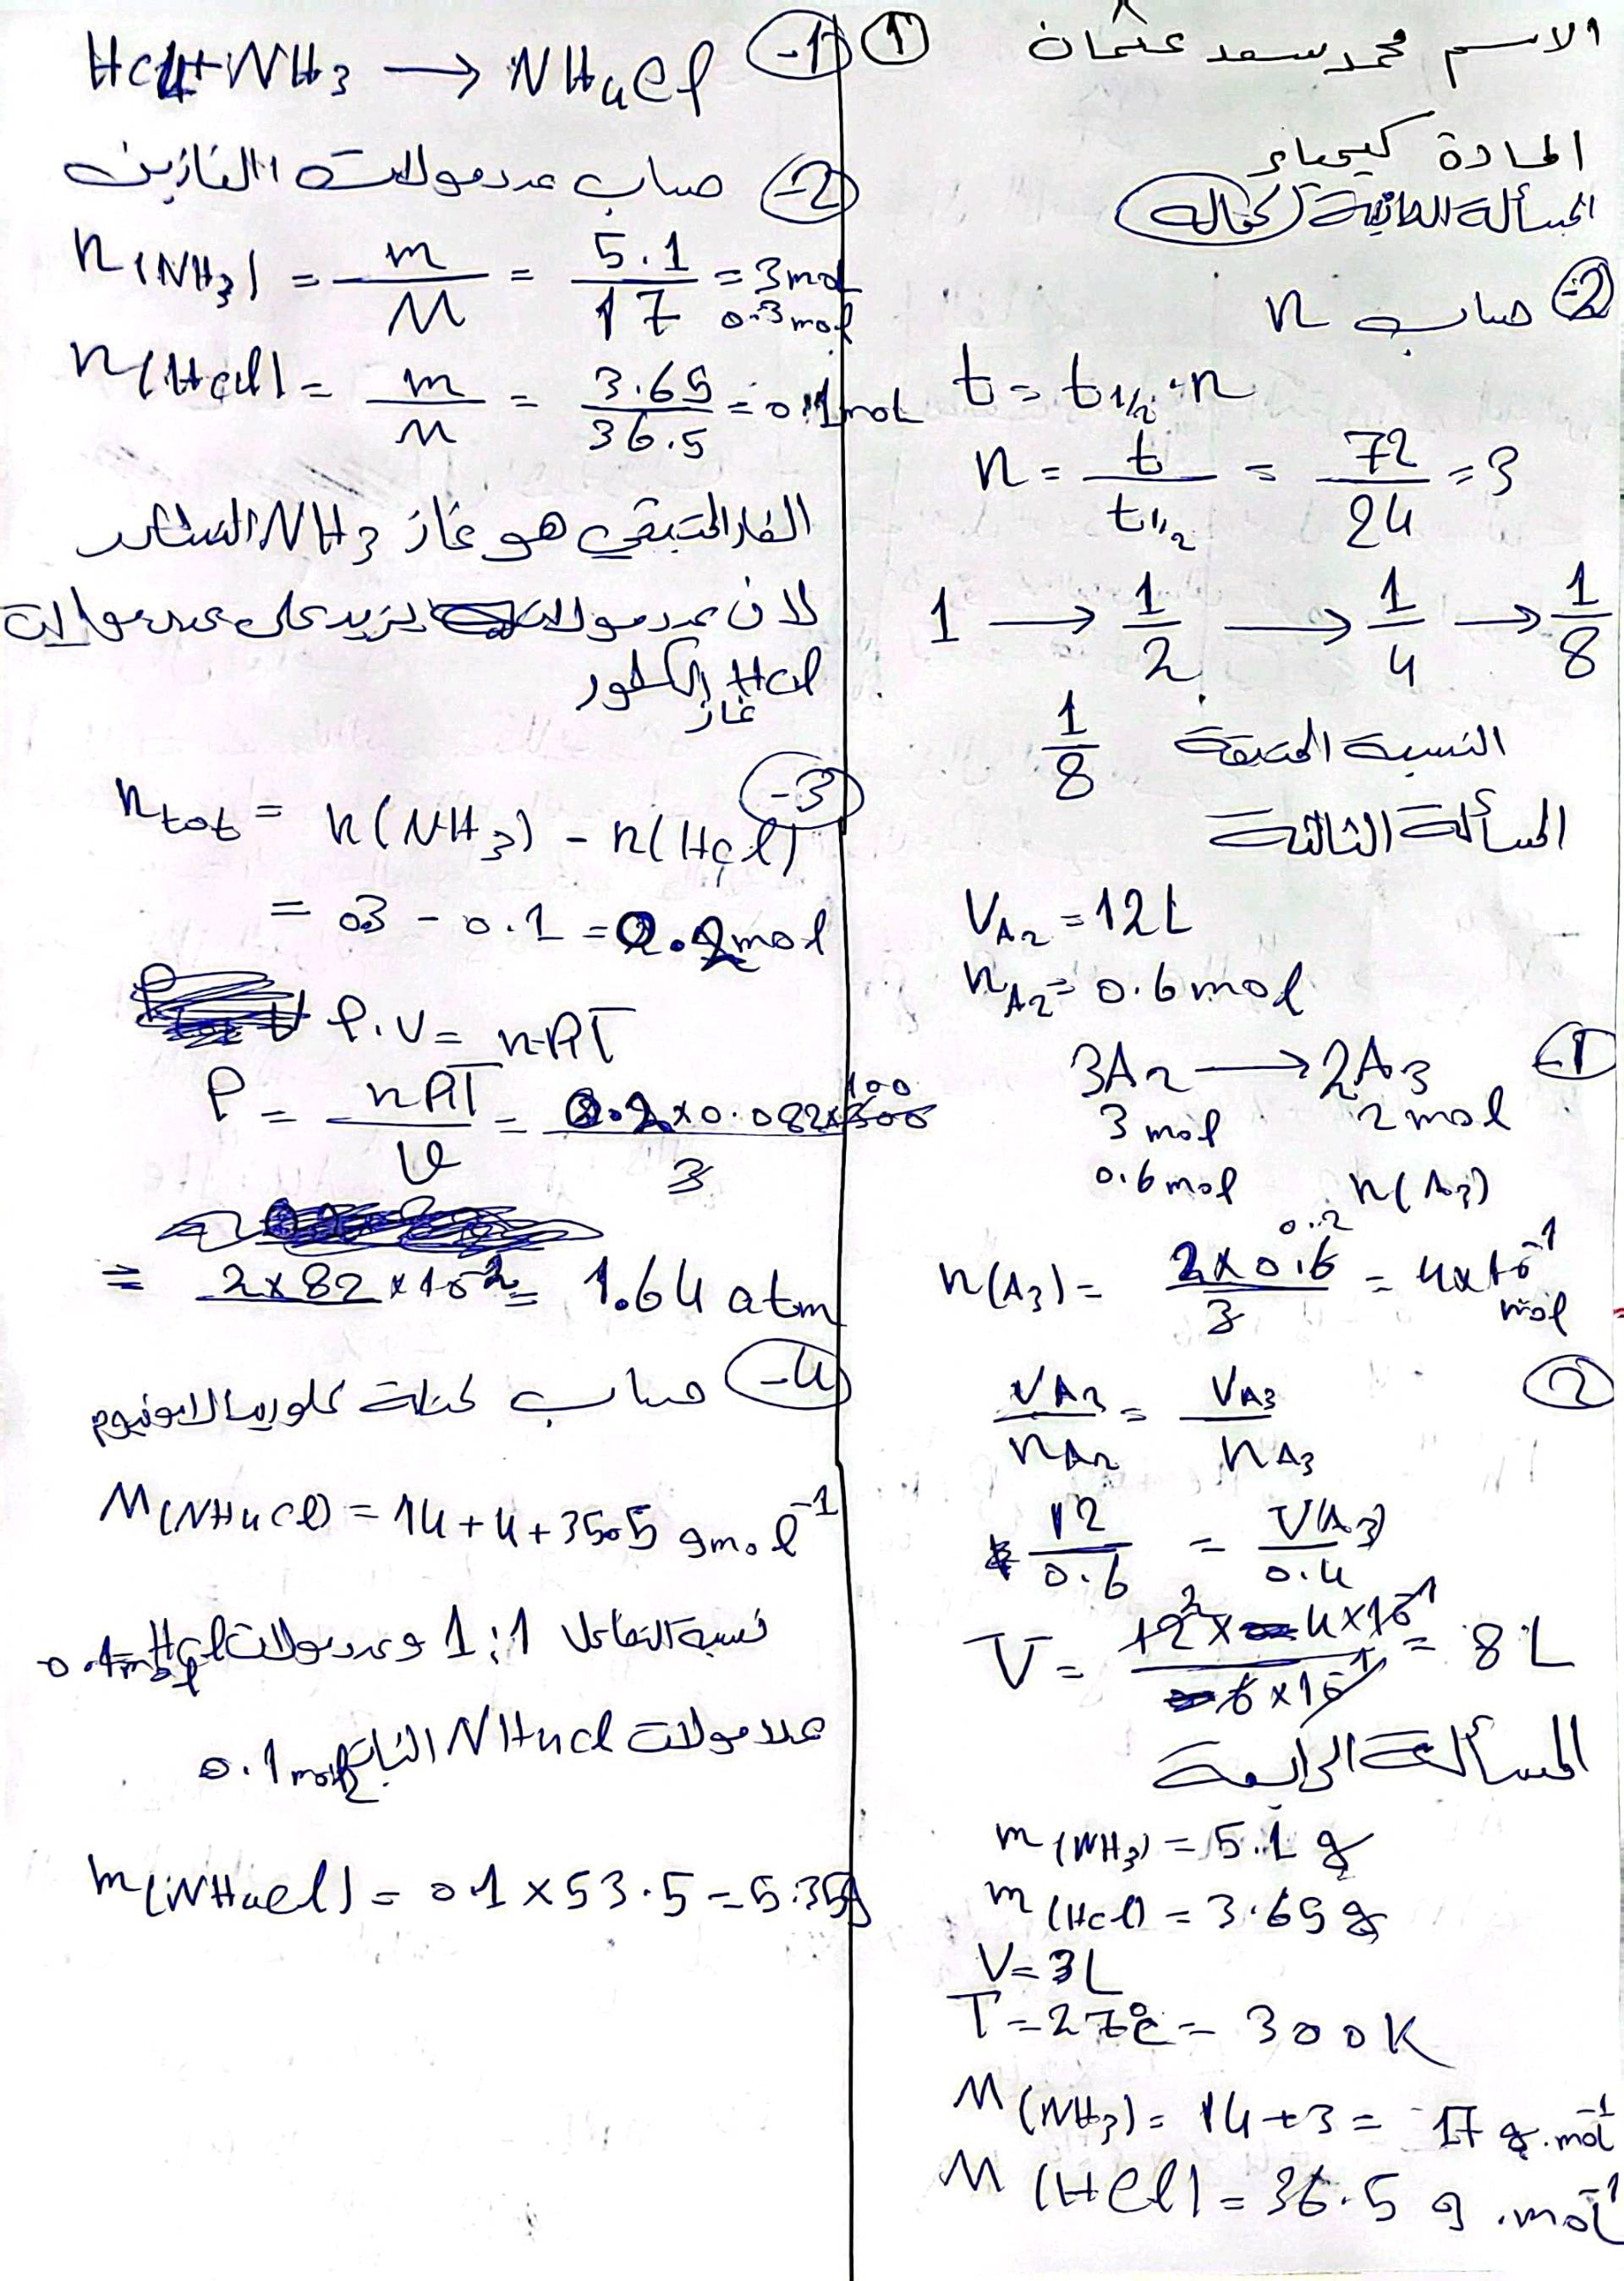 ① الاسم محمد سعد عثمان
المادة كيمياء
المسألة الثانية (تكملة)
2- حساب n
t = t1/2 · n
n = t / t1/2 = 72 / 24 = 3
1 → 1/2 → 1/4 → 1/8
النسبة المتبقية 1/8
المسألة الثالثة
VA2 = 12L
nA2 = 0.6 mol
1- 3A2 → 2A3
3 mol 2 mol
0.6 mol n(A3)
n(A3) = 2×0.6 / 3 = 4×10⁻¹ mol
0.2
2
VA2 / nA2 = VA3 / nA3
12 / 0.6 = V(A3) / 0.4
V = 12×4×10⁻¹ / 6×10⁻¹ = 8 L
2
المسألة الرابعة
m(NH3) = 5.1 g
m(HCl) = 3.65 g
V = 3L
T = 27°C = 300K
M(NH3) = 14+3 = 17 g.mol⁻¹
M(HCl) = 36.5 g.mol⁻¹
1- HCl + NH3 → NH4Cl
2- حساب عدد مولات الغازين
n(NH3) = m / M = 5.1 / 17 = 3mol
0.3 mol
n(HCl) = m / M = 3.65 / 36.5 = 0.1 mol
الغاز المتبقي هو غاز NH3
لان عدد مولات يزيد على عدد مولات
غاز HCl
3-
ntot = n(NH3) - n(HCl)
= 03 - 0.1 = 0.2 mol
P.V = nRT
P = nRT / V = 0.2×0.082×300 / 3
100
= 2×82×10⁻² = 1.64 atm
4- حساب كتلة كلوريد الامونيوم
M(NH4Cl) = 14+4+35.5 gmol⁻¹
نسبة التفاعل 1:1 وعدد مولات HCl 0.1mol
عدد مولات NH4Cl الناتج 0.1 mol
m(NH4Cl) = 01 × 53.5 = 5.35g